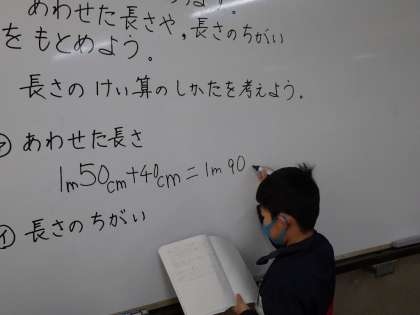 あわせた長さや,長さのちがい
をもとめよう。
長さのけい算のしかたを考えよう。
㋐ あわせた長さ
1m50cm+40cm=1m90
㋑ 長さのちがい